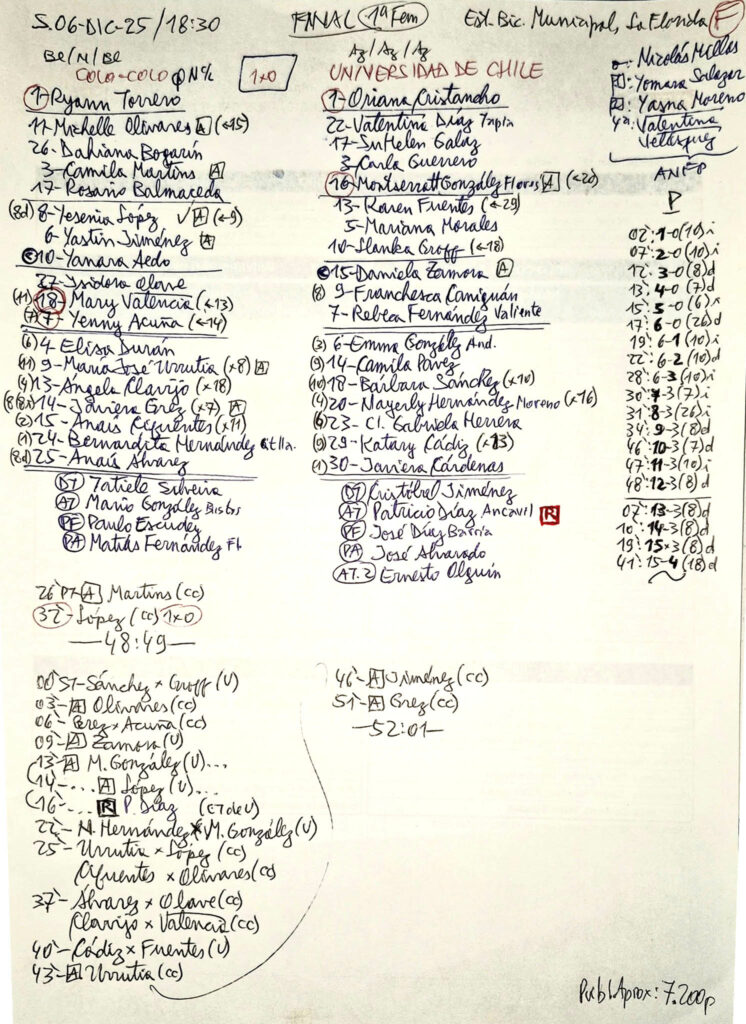 S. 06-DIC-25/18:30
FINAL 1ª Fem
Est. Bic. Municipal, La Florida F
BE/N/BE
COLO-COLO
1x0
AZ/AZ/AZ
UNIVERSIDAD DE CHILE
Yomara Salazar
Yasna Moreno
4ª Valentina
Velásquez
ANFP
1-Ryann Torrero
11-Michelle Olivares A (<15)
26-Dahiana Bogarín
3-Camila Martins A
17-Rosario Balmaceda
(8d) 8-Yesenia López ✓ A (<9)
6-Yastin Jiménez A
C 10-Yanara Aedo
37-Isidora Olave
(11) 18-Mary Valencia (<13)
(7) 7-Yenny Acuña (<14)
(6) 4-Elisa Durán
(11) 9-María José Urrutia (x8) A
(4) 13-Angela Clavijo (x18)
14-Javiera Grez (x7) A
(2) 15-Anaís Cifuentes (x11)
(1) 24-Bernardita Hernández
(8d) 25-Anaís Álvarez
DT Tatiele Silveira
AT Mario González Bustos
PF Paulo Escudey
PA Matías Fernández
1-Oriana Cristancho
22-Valentina Díaz Tapia
17-SuHelen Galaz
3-Carla Guerrero
16-Montserratt González Flores A (<20)
13-Karen Fuentes (<29)
5-Mariana Morales
10-Llanka Groff (<18)
C 15-Daniela Zamora A
(8) 9-Franchesca Caniguán
7-Rebeca Fernández Valiente
(3) 6-Emma González And.
(9) 14-Camila Pavez
(10) 18-Bárbara Sánchez (x10)
(4) 20-Nayerly Hernández Moreno (x16)
(6) 23-Cl. Gabriela Herrera
(9) 29-Katary Cádiz (x13)
(1) 30-Javiera Cárdenas
DT Cristóbal Jiménez
AT Patricio Díaz Ancavil R
PF José Díaz Barría
PA José Alvarado
AT.2 Ernesto Olguín
P
02:1-0(10)i
07:2-0(10)i
12:3-0(8)d
13:4-0(7)d
15:5-0(6)x
17:6-0(26)d
19:6-1(10)i
22:6-2(10)d
28:6-3(10)i
30:7-3(7)i
31:8-3(26)i
34:9-3(8)d
46:10-3(7)d
47:11-3(10)i
48:12-3(8)d
07:13-3(8)d
10:14-3(8)d
19:15x3(8)d
41:15-4(18)d
26' A Martins (cc)
32'-López (cc) 1x0
—48:49—
00'ST-Sánchez x Groff (U)
03-A Olivares (cc)
06-Grez x Acuña (cc)
09-A Zamora (U)
13-A M. González (U)...
14-... A López (U)...
16-... R P. Díaz (CT de U)
22-N. Hernández x M. González (U)
25-Urrutia x López (cc)
Cifuentes x Olivares (cc)
37-Álvarez x Olave (cc)
Clavijo x Valencia (cc)
40-Cádiz x Fuentes (U)
43-A Urrutia (cc)
46-A Jiménez (cc)
51-A Grez (cc)
—52:01—
Publ. Aprox: 7.200p